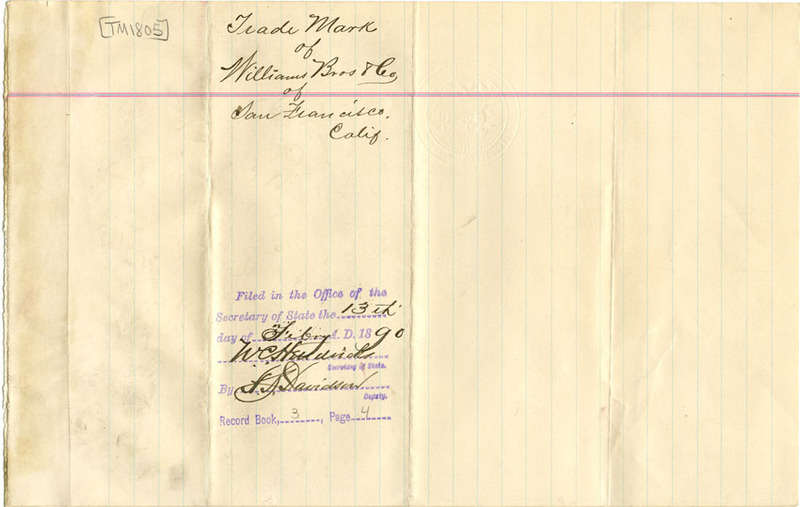 [TM1805]
Trade Mark
of
Williams Bros & Co
of
San Francisco.
Calif.
Filed in the Office of the
Secretary of State the 13th
day of Feby A. D. 1890
W. C. Hendricks
Secretary of State.
By Davidson
Deputy.
Record Book, 3, Page 4